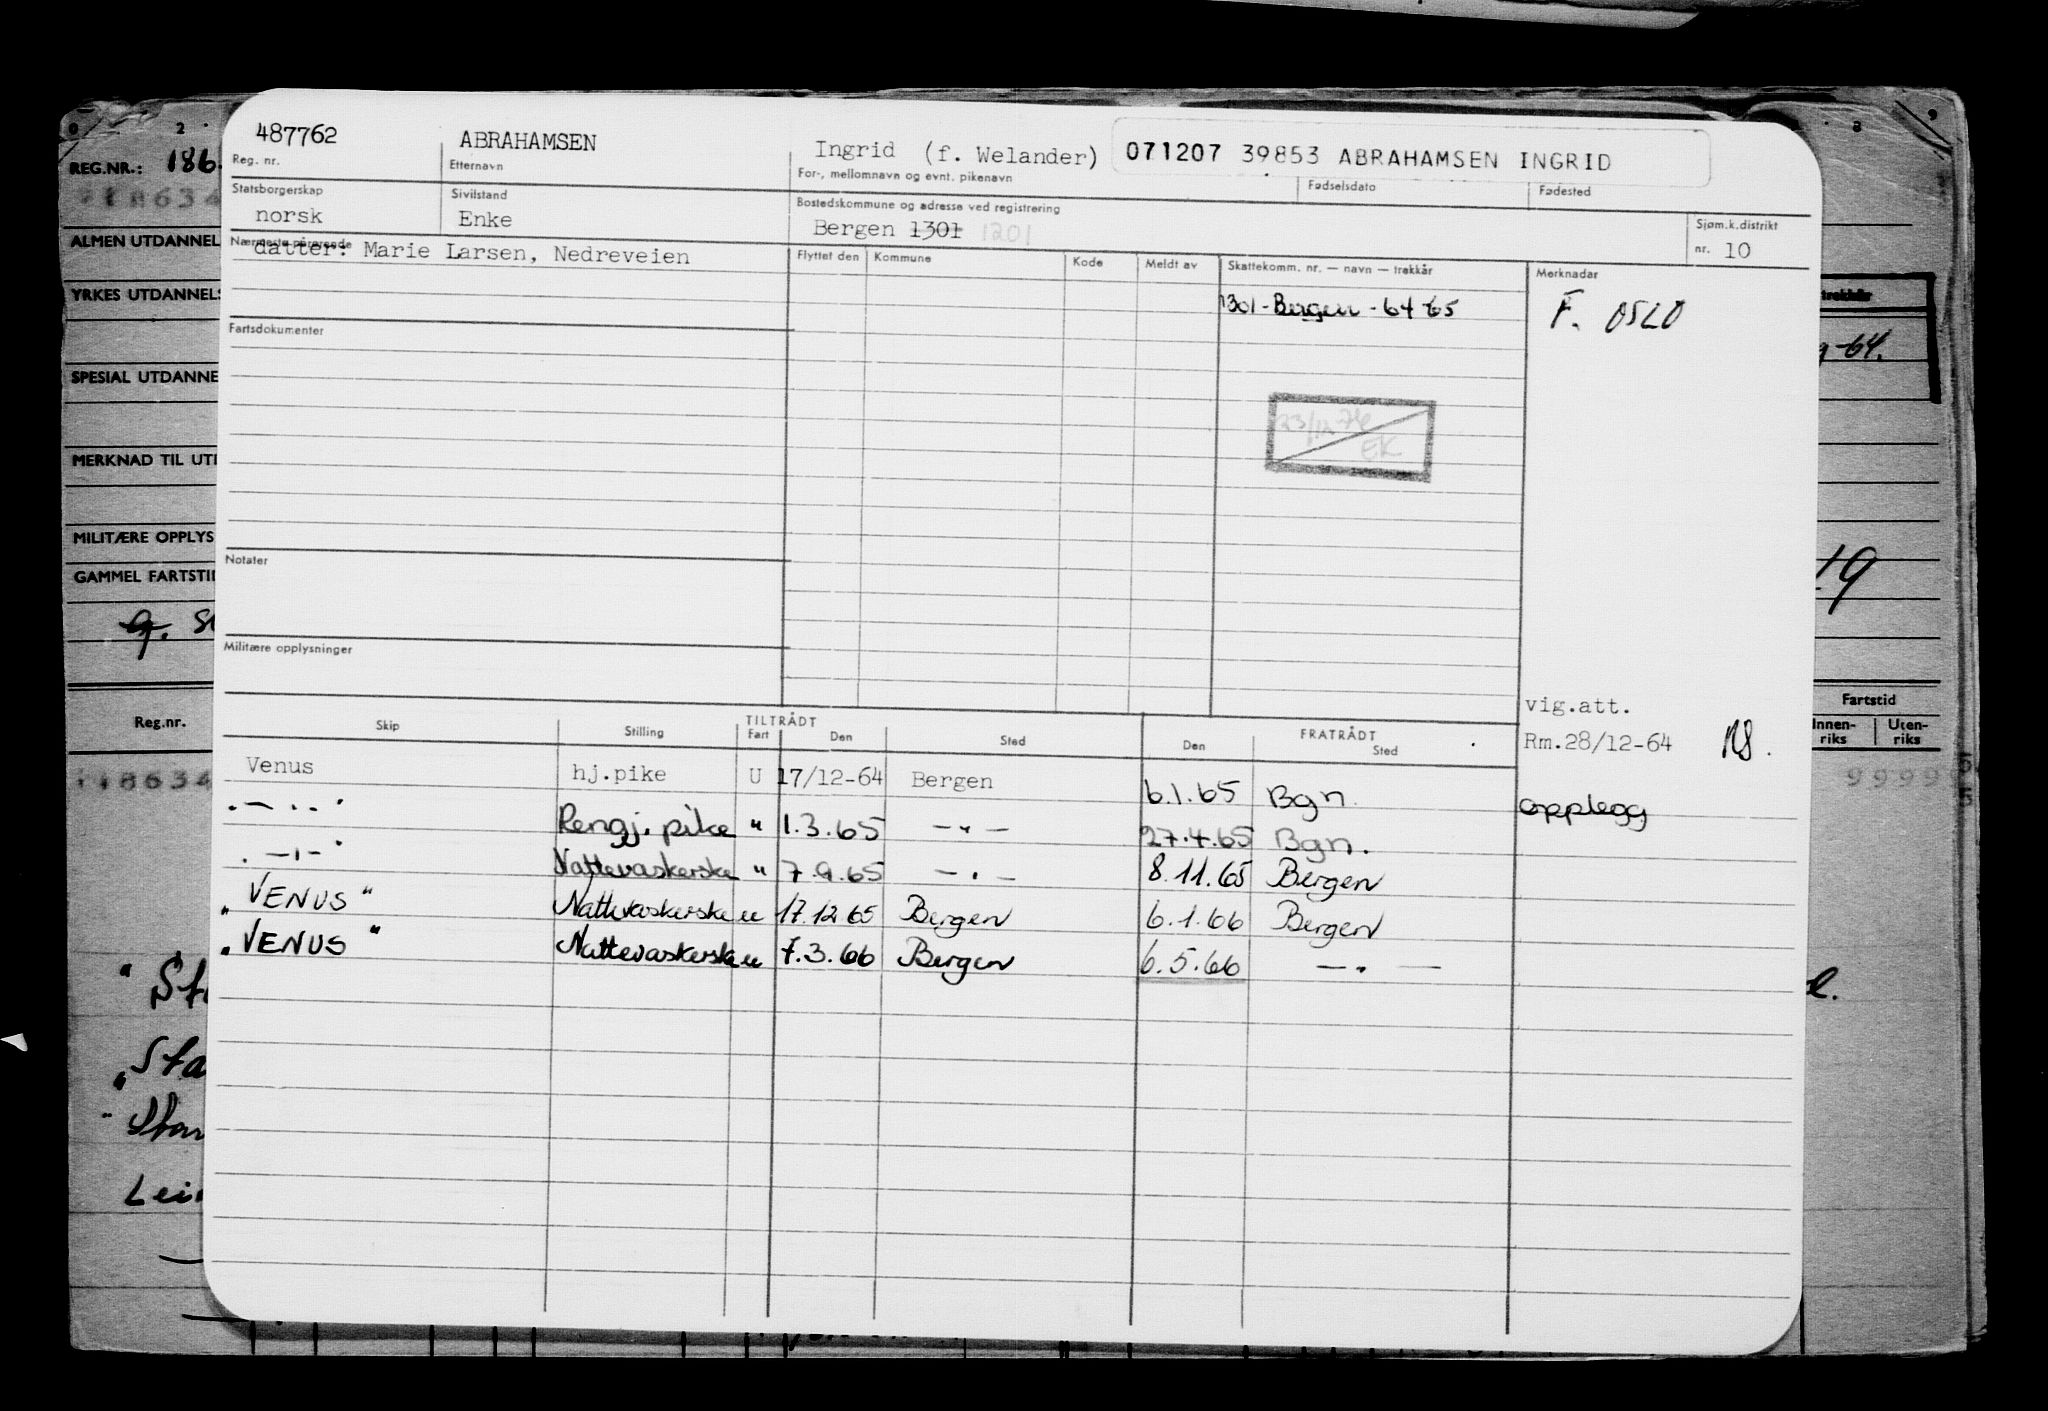 487762 ABRAHAMSEN Ingrid (f. Welander) 071207 39853 ABRAHAMSEN INGRID
Reg. nr. Etternavn For-, mellomnavn og evnt. pikenavn Fødselsdato Fødested
Statsborgerskap Sivilstand Bostedskommune og adresse ved registrering Sjøm.k.distrikt
norsk Enke Bergen 1301 1201 nr. 10
Nærmeste pårørende
datter: Marie Larsen, Nedreveien
Flyttet den Kommune Kode Meldt av Skattekomm. nr. — navn — trekkår Merknadar
1301-Bergen-64 65 F. OSLO
Fartsdokumenter
23/12 76
EK
Notater
Militære opplysninger
vig.att.
Rm.28/12-64
TILTRÅDT FRATRÅDT
Skip Stilling Fart Den Sted Den Sted
Venus hj.pike U 17/12-64 Bergen 6.1.65 Bgn. opplegg
-"- Rengj. pike " 1.3.65 -"- 27.4.65 Bgn.
-"- Nattevaskerske " 7.9.65 -"- 8.11.65 Bergen
"VENUS" Nattevaskerske u 17.12.65 Bergen 6.1.66 Bergen
"VENUS" Nattevaskerske u 7.3.66 Bergen 6.5.66 -"-
REG.NR.: 186
ALMEN UTDANNEL
YRKES UTDANNELS
SPESIAL UTDANNE
MERKNAD TIL UT
MILITÆRE OPPLYS
GAMMEL FARTSTI
Reg.nr.
"Sta
Lei
trekkår
-64.
19
Fartstid
Innen-riks Uten-riks
9999